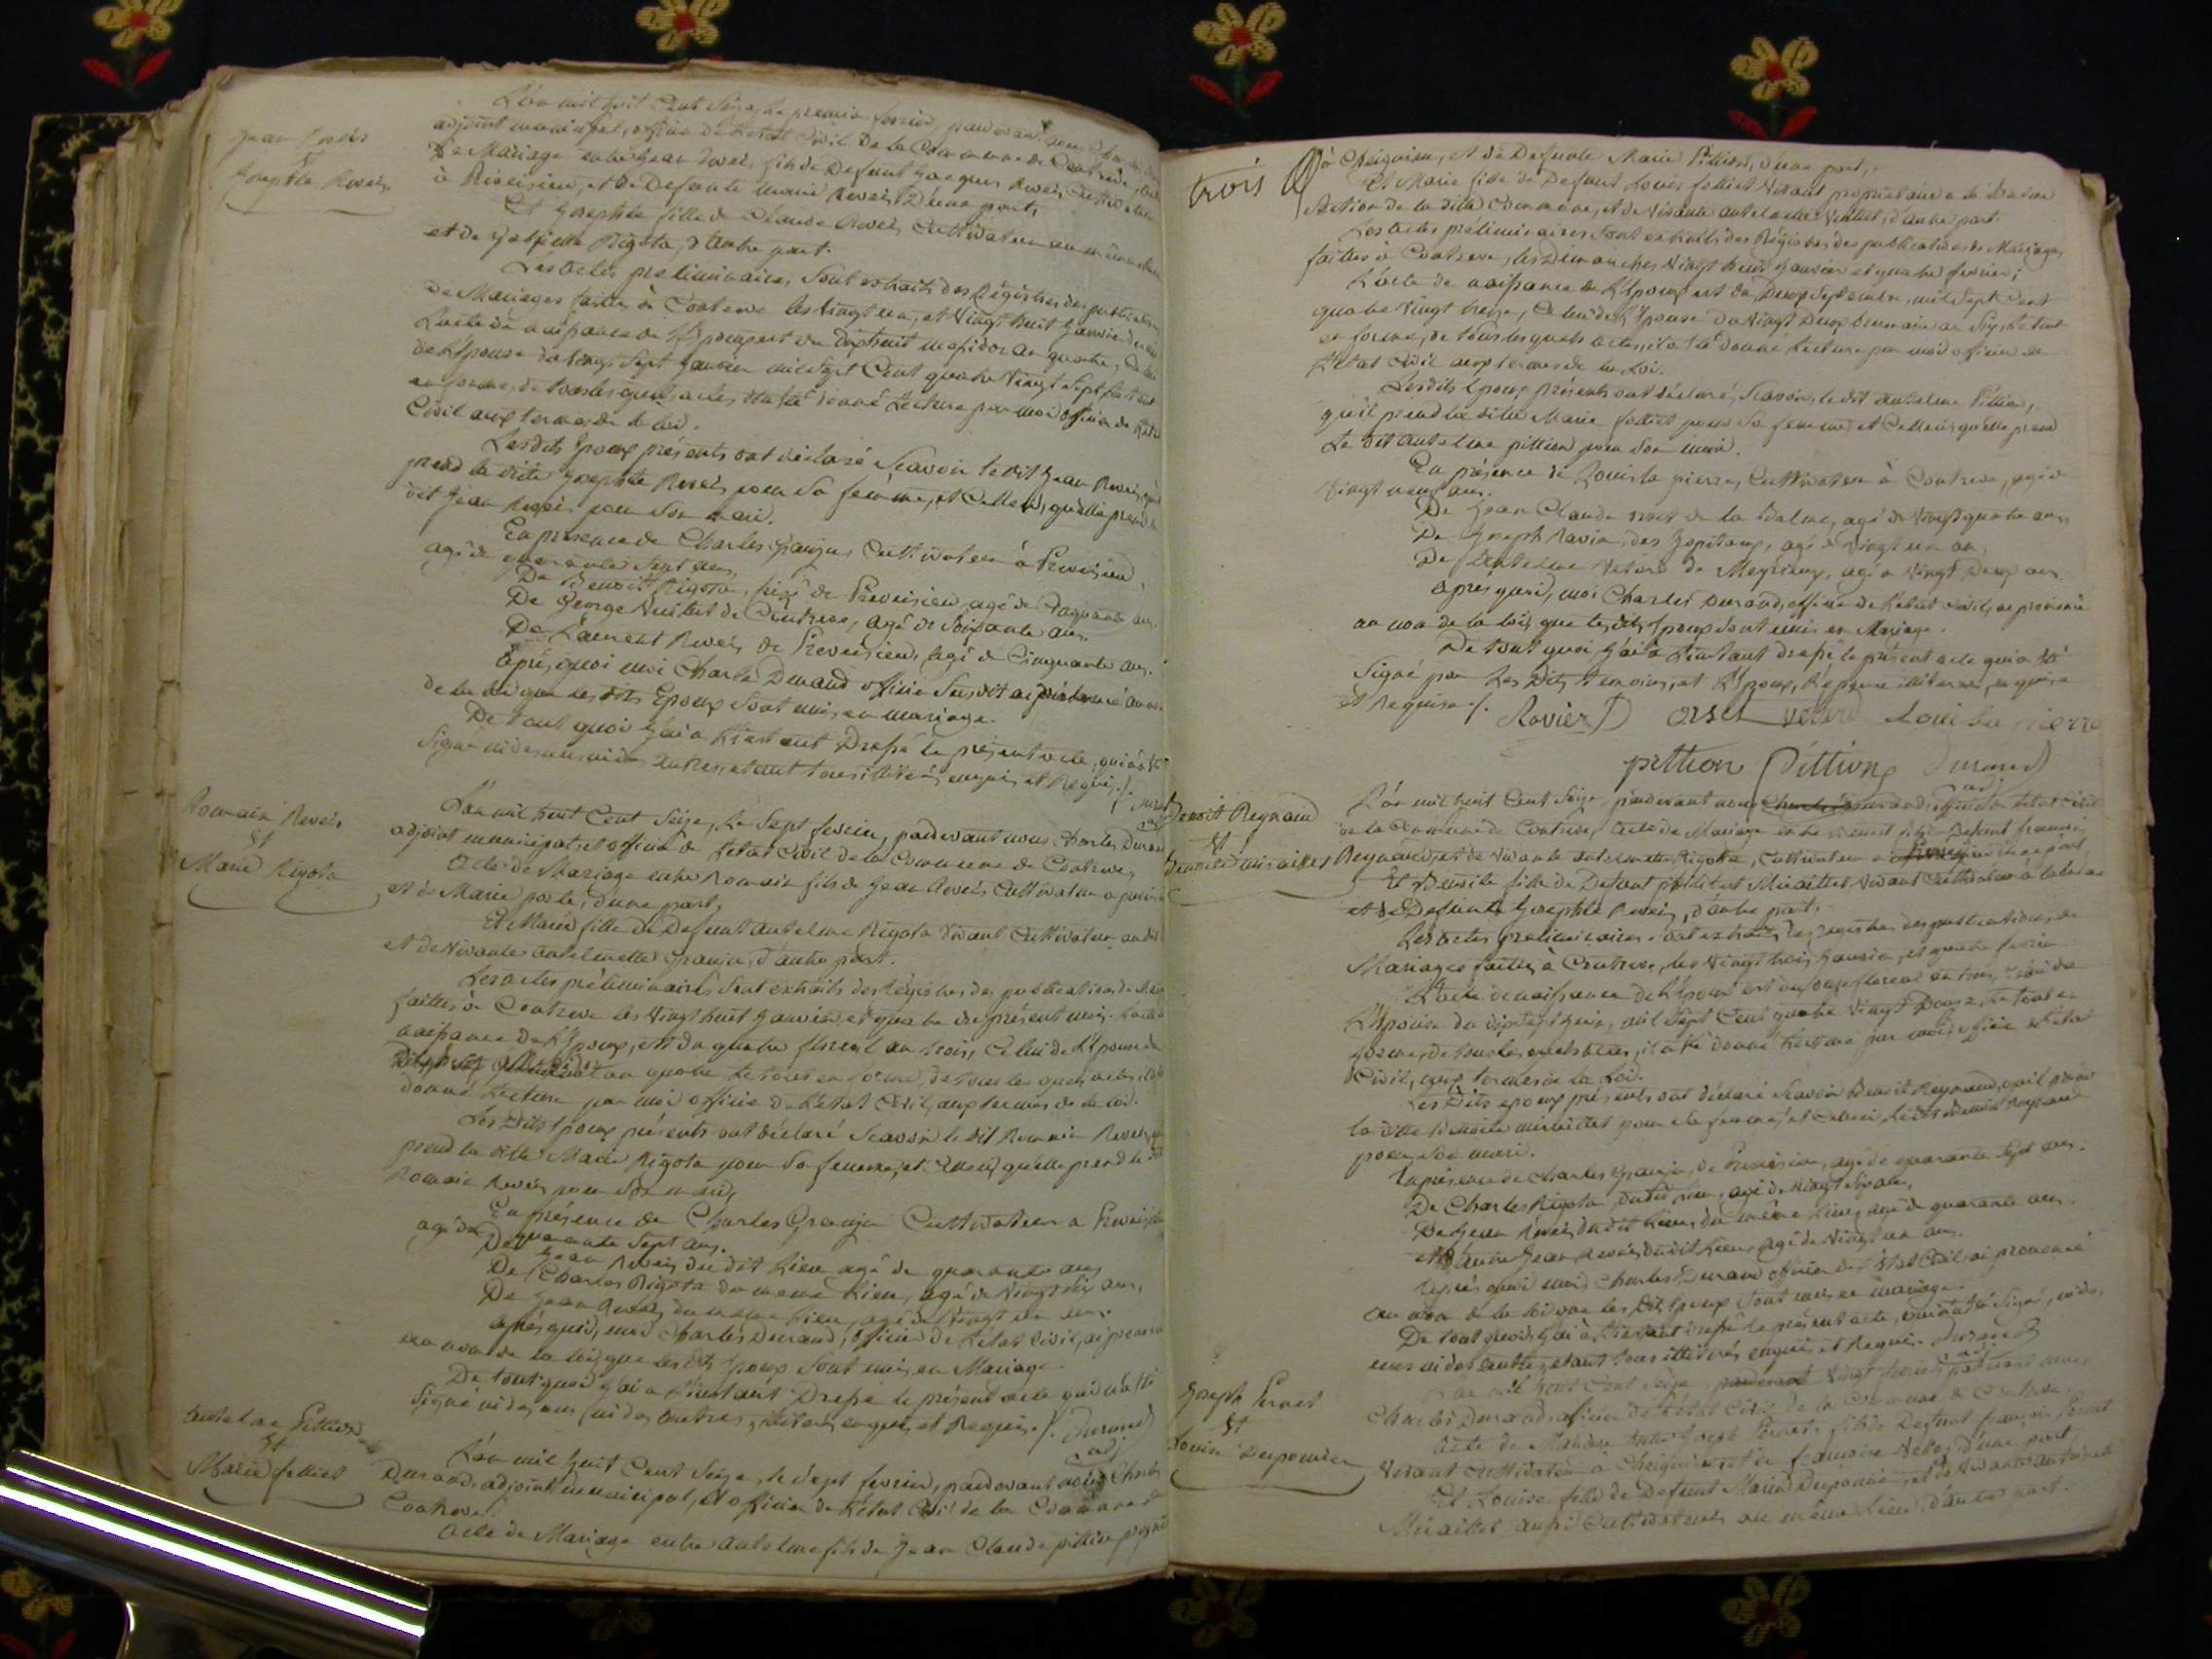 Jean Reveis
Et
Josephte Reveis
L'an mil huit Cent Seize, Le premier fevrier, pardevant nous
adjoint municipal, officier de Létat Civil de la Commune de Contrevoz
de Mariage entre Jean Reveis fils de Defunt Jacques Reveis Cultivateur
à Preveisieu, et de Defunte Marie Reveis, D'une part,
Et Josephte fille de Claude Reveis, Cultivateur au même lieu
et de Rigota, D'autre part.
Les actes preliminaires, Sont extraits des Régistres des publications
de Mariages faites à Contrevoz les Vingt un, et Vingt huit Janvier
L'acte de naissance de L'Epoux est du Dixhuit messidor an quatre,
de L'Epouse du Vingt Sept Janvier mil Sept Cent quatre Vingt Sept
en forme, de tous lesquels actes il a été donné Lecture par moi officier de
Civil aux termes de la loi.
Les dits Epoux présents ont déclaré Scavoir le dit Jean Reveis
prend la dite Josephte Reveis pour Sa femme, et Celle ci, qu'elle prend le
dit Jean Reveis pour Son mari.
En présence de Charles Granjon Cultivateur à Preveisieu,
agé de quarante Sept ans,
De Benoit Rigota, de Preveisieu agé de Cinquante ans.
De George de Contrevoz, agé de Soixante ans.
De Laurent Reveis de Preveisieu, agé de Cinquante ans.
après quoi moi Charles Durand officier Susdit ai prononcé au nom
de la loi que les dits Epoux Sont unis en mariage.
De tout quoi j'ai à L'instant Drefsé le présent acte, qui n'a été
Signé ni des uns ni des autres, etant tous illitérés, enquis et Requis ./.
Romain Reveis
Et
Marie Rigota
L'an mil huit Cent Seize, Le Sept fevrier, pardevant nous Charles Durand
adjoint municipal, et officier de Létat Civil de la Commune de Contrevoz
Acte de Mariage entre Romain fils de Jean Reveis Cultivateur a
et de Marie, D'une part,
Et Marie fille de Defunt antelme Rigota Vivant Cultivateur au dit
et de Vivante antelmette Granjon, D'autre part.
Les actes préliminaires Sont extraits des Régistres des publications de
faites à Contrevoz les Vingt huit Janvier, et quatre du présent mois. L'acte
naissance de L'Epoux, est du quatre floreal an trois, Celui de L'Epouse du
an quatre Le tout en forme, de tous les quels actes, il
donné Lecture par moi officier de Létat Civil, aux termes de la loi.
Les Dits Epoux présents ont déclaré Scavoir le dit Romain Reveis,
prend la dite Marie Rigota pour Sa femme, et Celle ci, qu'elle prend le
Romain Reveis pour Son mari,
En présence de Charles Granjon Cultivateur a
agé de quarante Sept ans.
De Jean Reveis du dit Lieu agé de quarante ans
De Charles Rigota du meme Lieu, agé de Vingt Six ans,
De Jean Reveis du meme Lieu, agé de Vingt un ans.
après quoi, moi Charles Durand, officier de Létat Civil, ai prononcé
au nom de la loi, que les dits Epoux Sont unis en Mariage.
De tout quoi j'ai a L'instant Drefsé le présent acte qui n'a été
Signé ni des uns, ni des autres, illitérés enquis, et Requis ./. Durand
adj
antelme Pittion
Et
Marie folliet
L'an mil huit Cent Seize, le Sept fevrier, pardevant nous Charles
Durand, adjoint municipal, et officier de Létat Civil de la Commune de
Contrevoz.
Acte de Mariage entre Antelme fils de Jean Claude pittion
trois
à Cheignieu, et de Defunte Marie Pittion, d'une part,
Et Marie fille de Defunt Louis folliet Vivant propriétaire a la Balme
Section de la dite Commune, et de Vivante antelmette, d'autre part.
Les actes préliminaires Sont extraits des Régistres des publications de Mariages
faites à Contrevoz, les Dimanches Vingt huit Janvier et quatre fevrier;
L'acte de naissance de L'Epoux est du Deux Septembre, mil Sept Cent
quatre Vingt treize, Celui de L'Epouse du Vingt Deux brumaire an Six, Le tout
en forme, de tous les quels actes, il a été donné Lecture par moi officier de
Létat Civil aux termes de la Loi.
Les dits Epoux présents ont déclaré, Scavoir, le dit Antelme Pittion,
qu'il prend la dite Marie folliet pour Sa femme, et Celle ci qu'elle prend
Le dit antelme pittion pour Son mari.
En présence de Louis la pierre, Cultivateur à Contrevoz, agé de
Vingt neuf ans.
De Jean Claude orset de la Balme, agé de Vingt quatre ans,
De Joseph Ravier, des hopitaux, agé de Vingt un an,
De antelme Vetard de Meyrieux, agé de Vingt Deux ans.
après quoi, moi Charles Durand, officier de Létat civil, ai prononcé
au nom de la loi, que les dits Epoux Sont unis en Mariage.
De tout quoi j'ai à L'instant Drefsé le présent acte qui a été
Signé par Les Dits temoins, et L'Epoux, L'Epouse illiterée, enquise
et Requise ./. Ravier J orset vetard Louis la pierre
pittion Pittion Durand
adj
Benoit Reynaud
Et
miraillet
L'an mil huit Cent Seize, pardevant nous Charles Durand, officier de Létat civil
de la Commune de Contrevoz, acte de Mariage entre Benoit fils de Defunt francois
Reynaud, et de Vivante antelmette Rigota, Cultivateur à d'une part,
Et fille de Defunt Miraillet Vivant Cultivateur à la balme
et de Defunte Josephte Reveis, d'autre part.
Les actes préliminaires Sont extraits des registres des publications de
Mariages faites à Contrevoz, les Vingt huit Janvier, et quatre fevrier
L'acte de naissance de L'Epoux est du onze floreal an trois, Celui de
L'Epouse du dix Sept, mil Sept Cent quatre Vingt Douze, Le tout en
forme, de tous les quels actes, il a été donné Lecture par moi officier de Létat
Civil, aux termes de la Loi.
Les Dits epoux présents ont déclaré Scavoir Benoit Reynaud, qu'il prend
la dite miraillet pour Sa femme, et Celle ci, le dit Benoit Reynaud
pour Son mari.
En présence de Charles Granjon, de Preveisieu, agé de quarante Sept ans.
De Charles Rigota dudit lieu, agé de Vingt Six ans,
De Jean Reveis, du dit Lieu, du même Lieu, agé de quarante ans.
et autre Jean Reveis, du dit Lieu, agé de Vingt un ans.
Après quoi moi Charles Durand officier de Létat Civil ai prononcé
au nom de la loi que les Dits Epoux Sont unis en mariage.
De tout quoi, j'ai à L'instant Drefsé le présent acte, qui n'a été Signé, ni des
uns ni des autres, etant tous illitérés enquis, et Requis. Durand
adj
Joseph Pernet
Et
Louise Duponder
L'an mil huit Cent Seize, Vingt fevrier pardevant nous,
Charles Durand, officier de Létat Civil de la Commune de Contrevoz,
Acte de Mariage entre Joseph Pernet, fils de Defunt françois Pernet
Vivant Cultivateur a Cheignieu, et de françoise, d'une part
Et Louise fille de Defunt et de Vivante antoinette
Miraillet aussi Cultivateurs au même Lieu, d'autre part.